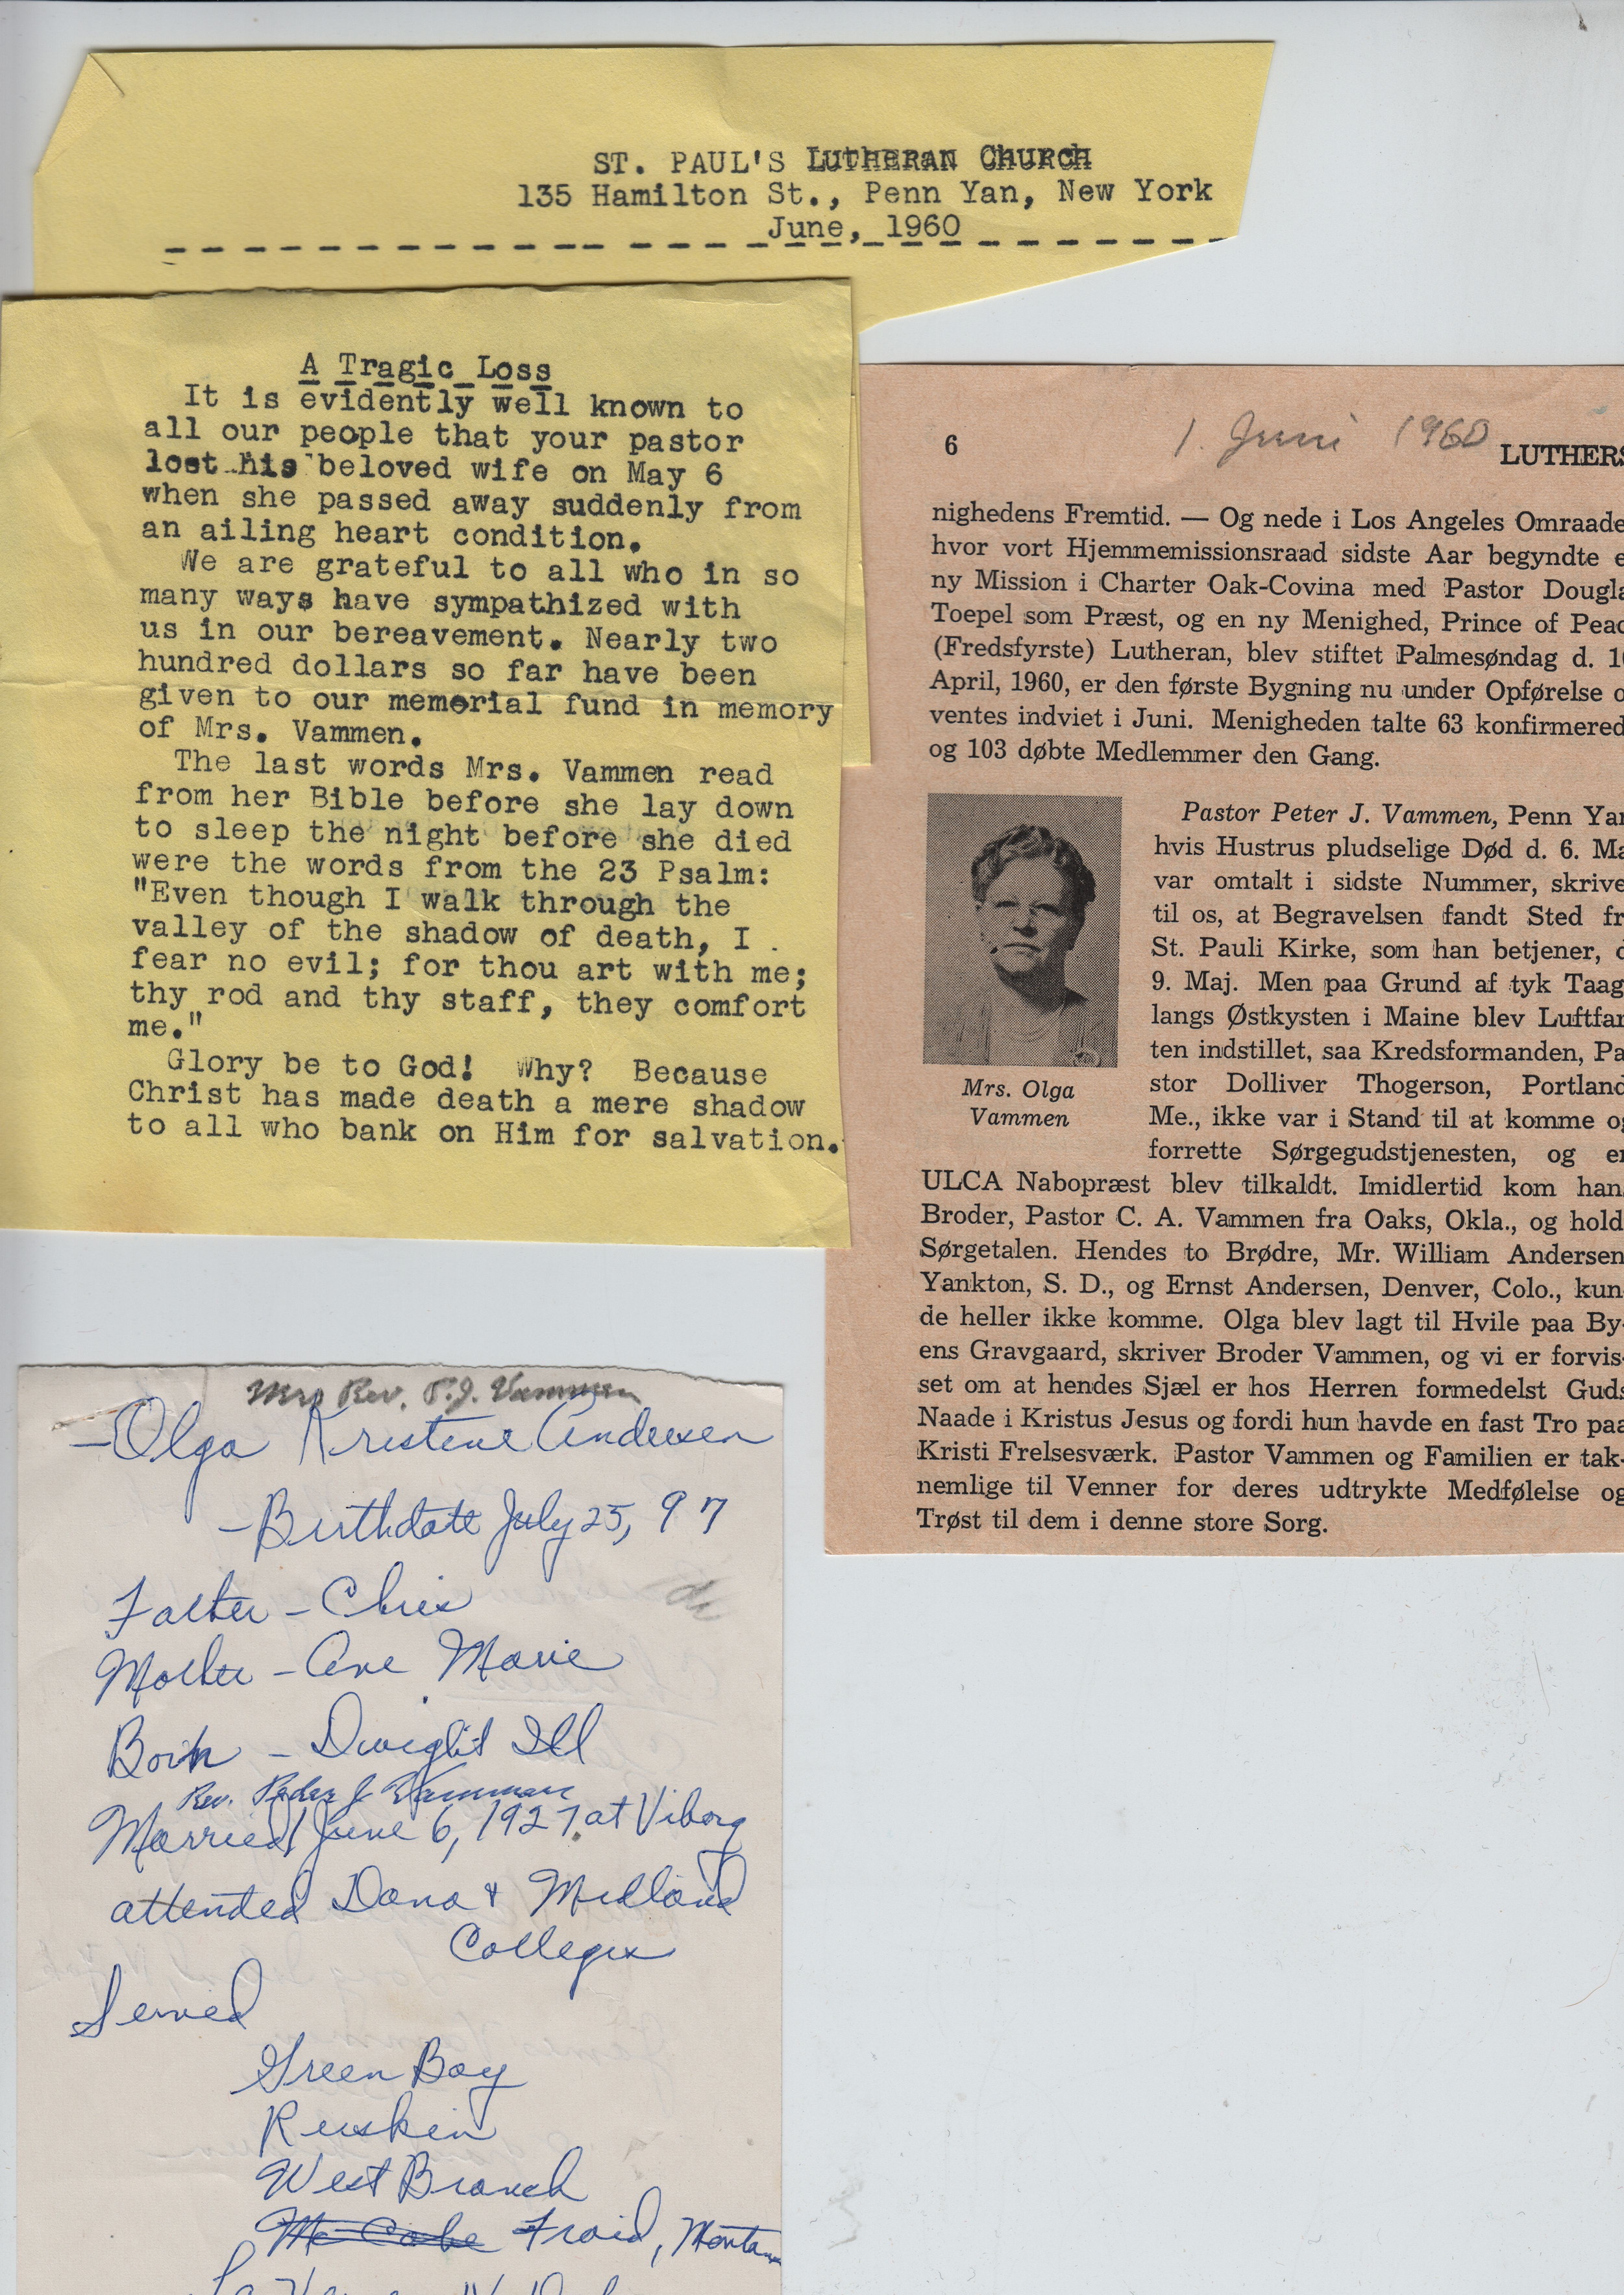 ST. PAUL'S LUTHERAN CHURCH
135 Hamilton St., Penn Yan, New York
June, 1960
A Tragic Loss
It is evidently well known to
all our people that your pastor
lost his beloved wife on May 6
when she passed away suddenly from
an ailing heart condition.
We are grateful to all who in so
many ways have sympathized with
us in our bereavement. Nearly two
hundred dollars so far have been
given to our memorial fund in memory
of Mrs. Vammen.
The last words Mrs. Vammen read
from her Bible before she lay down
to sleep the night before she died
were the words from the 23 Psalm:
"Even though I walk through the
valley of the shadow of death, I
fear no evil; for thou art with me;
thy rod and thy staff, they comfort
me."
Glory be to God! Why? Because
Christ has made death a mere shadow
to all who bank on Him for salvation.
6
1. Juni 1960
LUTHERS
nighedens Fremtid. — Og nede i Los Angeles Omraade
hvor vort Hjemmemissionsraad sidste Aar begyndte e
ny Mission i Charter Oak-Covina med Pastor Dougla
Toepel som Præst, og en ny Menighed, Prince of Peac
(Fredsfyrste) Lutheran, blev stiftet Palmesøndag d. 1
April, 1960, er den første Bygning nu under Opførelse o
ventes indviet i Juni. Menigheden talte 63 konfirmered
og 103 døbte Medlemmer den Gang.
Pastor Peter J. Vammen, Penn Yan
hvis Hustrus pludselige Død d. 6. Ma
var omtalt i sidste Nummer, skrive
til os, at Begravelsen fandt Sted fr
St. Pauli Kirke, som han betjener, d
9. Maj. Men paa Grund af tyk Taag
langs Østkysten i Maine blev Luftfar
ten indstillet, saa Kredsformanden, Pa
stor Dolliver Thogerson, Portland
Me., ikke var i Stand til at komme og
forrette Sørgegudstjenesten, og en
Mrs. Olga
Vammen
ULCA Nabopræst blev tilkaldt. Imidlertid kom hans
Broder, Pastor C. A. Vammen fra Oaks, Okla., og hold
Sørgetalen. Hendes to Brødre, Mr. William Andersen
Yankton, S. D., og Ernst Andersen, Denver, Colo., kun-
de heller ikke komme. Olga blev lagt til Hvile paa By-
ens Gravgaard, skriver Broder Vammen, og vi er forvis-
set om at hendes Sjæl er hos Herren formedelst Guds
Naade i Kristus Jesus og fordi hun havde en fast Tro paa
Kristi Frelsesværk. Pastor Vammen og Familien er tak-
nemlige til Venner for deres udtrykte Medfølelse og
Trøst til dem i denne store Sorg.
Mrs Rev. P.J. Vammen
—Olga Kristene Andersen
—Birthdate July 25, 97
Father – Chris
Mother – Ane Marie
Born – Dwight Ill
Rev. Peder J Vammen
Married June 6, 1927 at Viborg
attended Dana & Midland
Colleges
Served
Green Bay
Ruskin
West Branch
Mc Cabe Froid, Montana